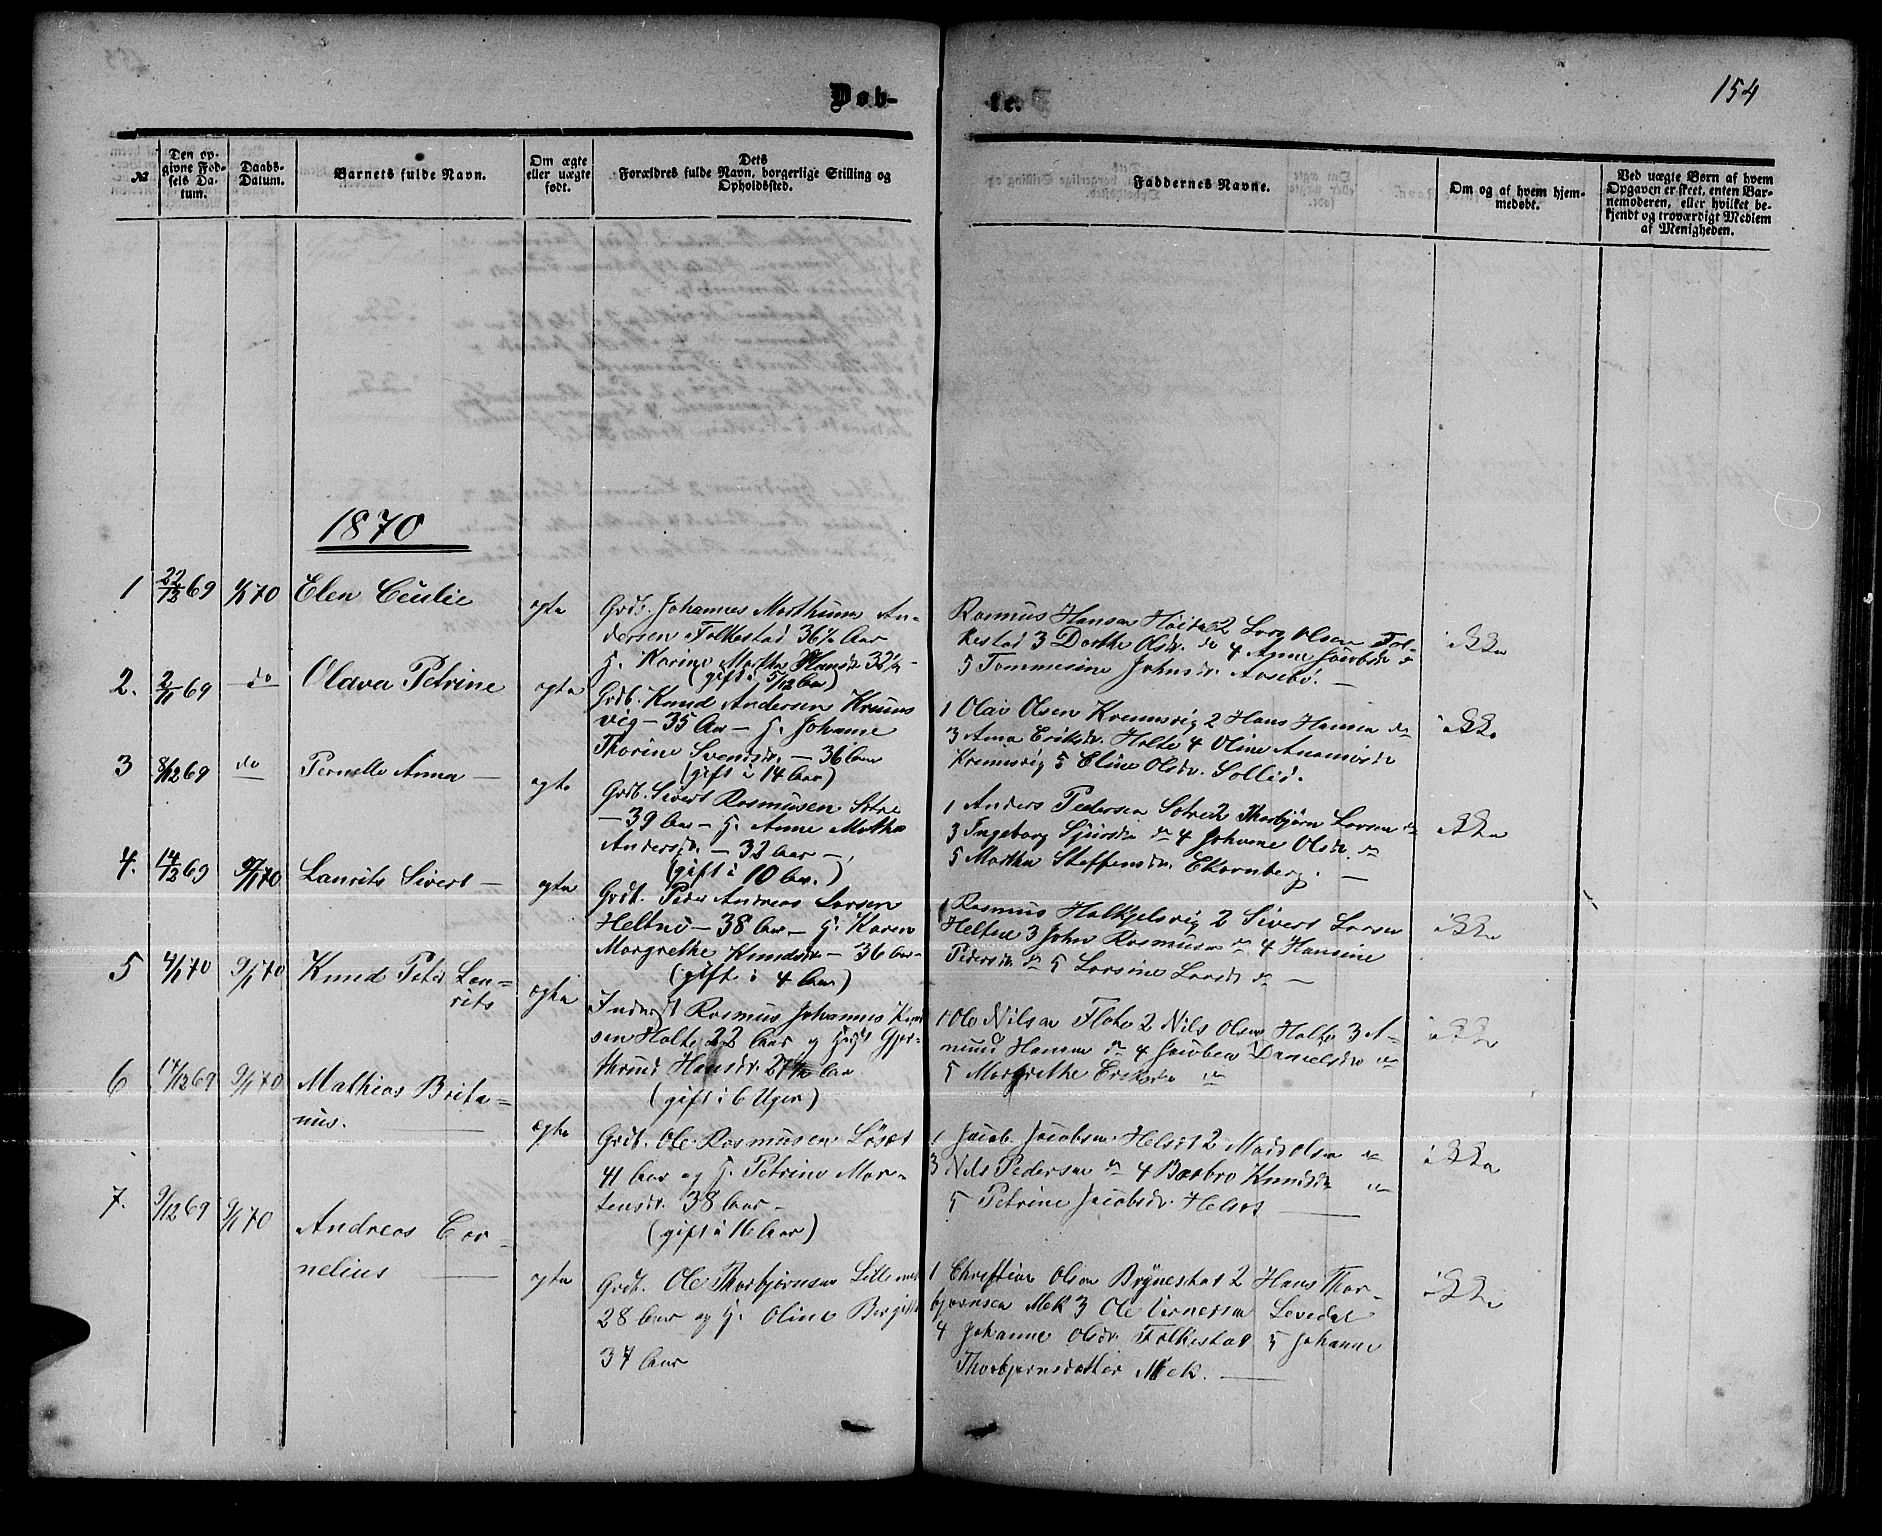 154
Døb-
te.
№
Den op-
givne Fød-
sels Da-
tum.
Daabs-
Datum.
Barnets fulde Navn.
Om ægte
eller uægte
født.
Dets
Forældres fulde Navn, borgerlige Stilling og
Opholdssted.
Faddernes Navne.
Om og af hvem hjem-
medøbt.
Ved uægte Børn af hvem
Opgaven er skeet, enten Bar-
nemoderen, eller hvilket be-
kjendt og troværdigt Medlem
af Menigheden.
1870
1 22/12 69 1/1 70 Elen Cecilie ægte
Grdb. Johannes Marthinus An-
dersen Folkestad 36 Aar
H. Karine Marthe Hansdr. 32½
(gift i 5/12 Aar)
Rasmus Hansen 2 Lars Olsen Fol-
kestad 3 Dorthe Olsdr. do 4 Anne Jacobsdr do
5 Tommesine Johnsdr. Aasebø. —
ikke
2. 69 do Olava Petrine ægte
Grdb. Knud Andersen Krums
vig — 35 Aar — H. Johanne
Thorine Svendsdr. — 36 Aar
(gift i 14 Aar)
1 Olai Olsen Kremsvig 2 Hans Hansen do
3 Anna Eriksdr. Holte 4 Oline
Kremsvig 5 Eline Olsdr. Sollid.
ikke
3 8/12 69 do Pernelle Anna — ægte
Grdb. Sivert Rasmusen Sotre
— 39 Aar — H. Anne Marthe
Andersdr. — 32 Aar —
(gift i 10 Aar.)
1 Anders Pedersen Sotre 2 Thorbjørn Larsen do
3 Ingeborg Sjursdr do 4 Johanne Olsdr. do
5 Marthe Steffensdr. Ekornberg. —
ikke
4. 14/12 69 9/1 70 Laurits Sivert — ægte
Grdb. Peder Andreas Larsen
Heltne — 38 Aar — H. Karen
Margrethe Knudsdr — 36 Aar —
(gift i 4 Aar)
1 Rasmus Halkjelsvig 2 Sivert Larsen
Heltne 3 John Rasmusen do 4 Hansine
Pedersdr. do 5 Larsine Larsdr do —
ikke
5 4/1 70 9/1 70 Knud Peter Lau=
rits ægte
Inderst Rasmus Johannes Knud
sen Holte 22 Aar og Hustr Gjer-
thrud Hansdr. 27 Aar
(gift i 6 Uger)
1 Ole Nilsen Flote 2 Nils Olsen Holte 3 A-
mund Hansen do 4 Jacobea Danielsdr do
5 Margrethe Eriksdr do
ikke
6 17/12 69 9/1 70 Mathias Brita=
nus. ægte
Grdb. Ole Rasmusen Løset
41 Aar og H. Petrine Mar-
tensdr. 38 Aar —
(gift i 16 Aar)
1 Jacob Jacobsen Helset 2 Mads Olsen do
3 Nils Pedersen do 4 Barbro Knudsdr do
5 Petrine Jacobsdr. Helset
ikke
7. 9/12 69 9/1 70 Andreas Cor-
nelius ægte
Grdb. Ole Thorbjørnsen
28 Aar og H. Oline Bergitte
37 Aar
1 Christian Olsen Brynestad 2 Hans Thor-
bjørnsen Mek 3 Ole Levedal
4 Johanne Olsdr. Folkestad 5 Johanne
Thorbjørnsdatter Mek.
ikke